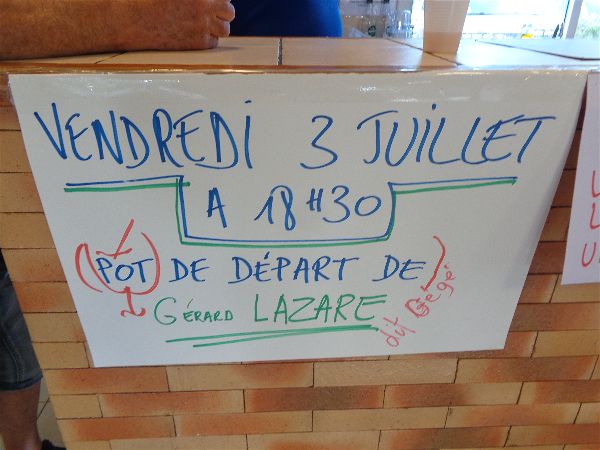 VENDREDI 3 JUILLET
A 18H30
(POT) DE DÉPART DE
GÉRARD LAZARE
dit Gégé
L
L
U